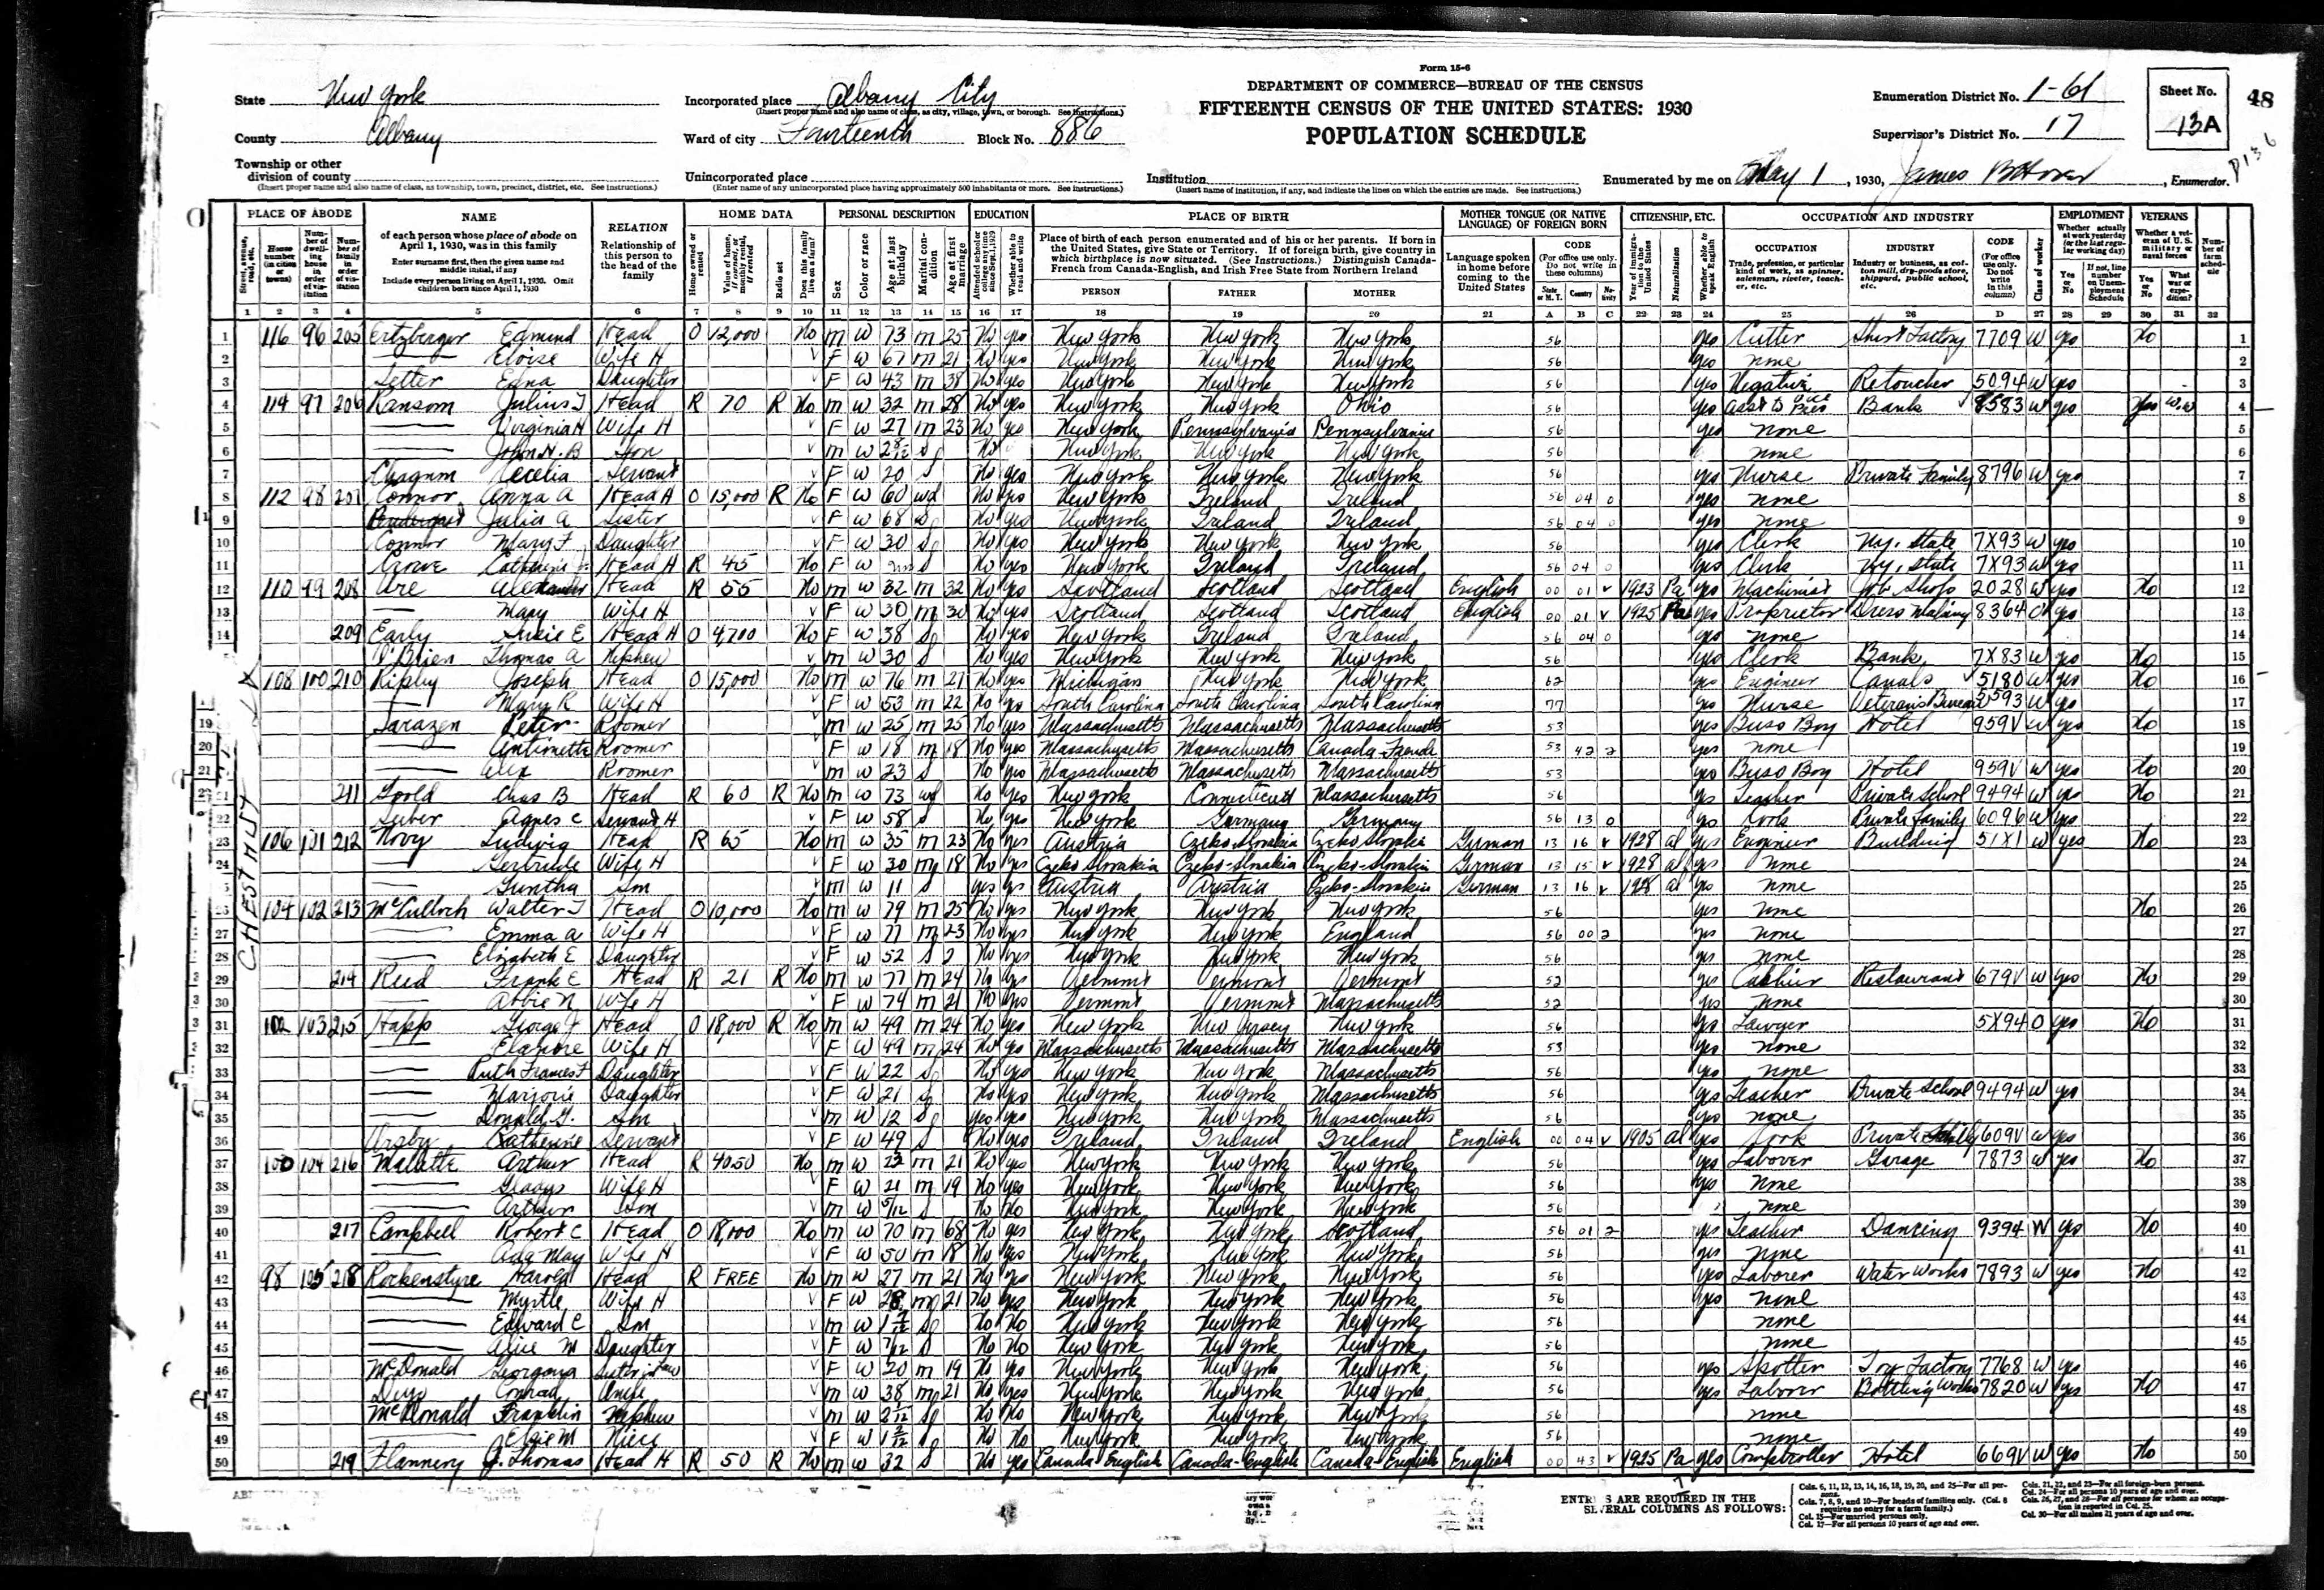 Form 15-6
DEPARTMENT OF COMMERCE—BUREAU OF THE CENSUS
FIFTEENTH CENSUS OF THE UNITED STATES: 1930
POPULATION SCHEDULE
State New York
County Albany
Township or other division of county
(Insert proper name and also name of class, as township, town, precinct, district, etc. See instructions.)
Incorporated place Albany City
(Insert proper name and also name of class, as city, village, town, or borough. See instructions.)
Ward of city Fourteenth Block No. 886
Unincorporated place
(Enter name of any unincorporated place having approximately 500 inhabitants or more. See instructions.)
Institution
(Insert name of institution, if any, and indicate the lines on which the entries are made. See instructions.)
Enumeration District No. 1-61
Supervisor's District No. 17
Sheet No. 13A
48
Enumerated by me on May 1, 1930, James B , Enumerator.
PLACE OF ABODE NAME RELATION HOME DATA PERSONAL DESCRIPTION EDUCATION PLACE OF BIRTH MOTHER TONGUE (OR NATIVE LANGUAGE) OF FOREIGN BORN CITIZENSHIP, ETC. OCCUPATION AND INDUSTRY EMPLOYMENT VETERANS
of each person whose place of abode on April 1, 1930, was in this family
Enter surname first, then the given name and middle initial, if any
Include every person living on April 1, 1930. Omit children born since April 1, 1930
Relationship of this person to the head of the family
Place of birth of each person enumerated and of his or her parents. If born in the United States, give State or Territory. If of foreign birth, give country in which birthplace is now situated. (See Instructions.) Distinguish Canada-French from Canada-English, and Irish Free State from Northern Ireland
PERSON FATHER MOTHER
Language spoken in home before coming to the United States
CHESTNUT
1 116 96 205 Ertzberger Edmund Head O 12,000 No M W 73 M 25 No yes New York New York New York 56 yes Cutter Shirt Factory 7709 W yes No
2 Eloise Wife H F W 67 M 21 No yes New York New York New York 56 yes none
3 Setter Edna Daughter F W 43 M 38 No yes New York New York New York 56 yes Negative Retoucher 5094 W yes
4 114 97 206 Ransom Julius Head R 70 R No M W 32 M 28 No yes New York New York Ohio 56 yes Asst to Vice Pres Bank 8583 W yes yes W.W
5 Virginia H Wife H F W 27 M 23 No yes New York Pennsylvania Pennsylvania 56 yes none
6 John H. B Son M W S No New York New York New York 56 none
7 Cecelia Servant F W 20 S No yes New York New York New York 56 yes Nurse Private Family 8796 W yes
8 112 98 207 Connor Anna A Head H O 15,000 R No F W 60 wd No yes New York Ireland Ireland 56 04 0 yes none
9 Julia A Sister F W 68 No yes New York Ireland Ireland 56 04 0 yes none
10 Connor Mary F Daughter F W 30 S No yes New York New York New York 56 yes Clerk Ny. State 7X93 W yes
11 Crowe Catherine Head H R 45 No F W No yes New York Ireland Ireland 56 04 0 yes Clerk Ny. State 7X93 W yes
12 110 99 208 Ure Alexander Head R 55 No M W 32 M 32 No yes Scotland Scotland Scotland English 00 01 V 1923 Pa yes Machinist Job Shop 2028 W yes No
13 Mary Wife H F W 30 M 30 No yes Scotland Scotland Scotland English 00 01 V 1925 Pa yes Proprietor Dress Making 8364 O yes
14 209 Early Susie E Head H O 4,700 No F W 38 S No yes New York Ireland Ireland 56 04 0 yes none
15 O'Brien Thomas A Nephew M W 30 S No yes New York New York New York 56 yes Clerk Bank 7X83 W yes No
16 108 100 210 Ripley Joseph Head O 15,000 No M W 76 M 27 No yes Michigan New York New York 62 yes Engineer Canals 5180 W yes No
17 Mary R Wife H F W 53 M 22 No yes South Carolina South Carolina South Carolina 77 yes Nurse Veterans Bureau 5593 W yes
18 Sarazen Peter Roomer M W 25 M 25 No yes Massachusetts Massachusetts Massachusetts 53 yes Buss Boy Hotel 959V W yes No
19 Antinette Roomer F W 18 M 18 No yes Massachusetts Massachusetts Canada-French 53 42 2 yes none
20 Alex Roomer M W 23 S No yes Massachusetts Massachusetts Massachusetts 53 yes Buss Boy Hotel 959V W yes No
21 211 Goold Chas B Head R 60 R No M W 73 wd No yes New York Connecticut Massachusetts 56 yes Teacher Private School 9494 W yes No
22 Agnes C Servant H F W 58 S No yes New York Germany Germany 56 13 0 yes Cook Private Family 6096 W yes
23 106 101 212 Novy Ludwig Head R 65 No M W 35 M 23 No yes Austria Czeko-Slovakia Czeko Slovakia German 13 16 V 1928 al yes Engineer Building 51X1 W yes No
24 Gertrude Wife H F W 30 M 18 No yes Czeko Slovakia Czeko-Slovakia Czeko-Slovakia German 13 15 V 1928 al yes none
25 Guntha Son M W 11 S yes yes Austria Austria Czeko-Slovakia German 13 16 V 1928 al yes none
26 104 102 213 McCulloch Walter J Head O 10,000 No M W 79 M 25 No yes New York New York New York 56 yes none No
27 Emma A Wife H F W 77 M 23 No yes New York New York England 56 00 2 yes none
28 Elizabeth E Daughter F W 52 S No yes New York New York New York 56 yes none
29 214 Reed Frank E Head R 21 R No M W 77 M 24 No yes Vermont Vermont Vermont 52 yes Cashier Restaurant 679V W yes No
30 Abbie N Wife H F W 74 M 21 No yes Vermont Vermont Massachusetts 52 yes none
31 102 103 215 Happ George F Head O 18,000 R No M W 49 M 24 No yes New York New Jersey New York 56 yes Lawyer 5X94 O yes No
32 Elanore Wife H F W 49 M 24 No yes Massachusetts Massachusetts Massachusetts 53 yes none
33 Ruth Frances F Daughter F W 22 S No yes New York New York Massachusetts 56 yes none
34 Marjorie Daughter F W 21 S No yes New York New York Massachusetts 56 yes Teacher Private School 9494 W yes
35 Donald G. Son M W 12 S yes yes New York New York Massachusetts 56 yes none
36 Katherine Servant F W 49 S No yes Ireland Ireland Ireland English 00 04 V 1905 al yes Cook Private 609V W yes
37 100 104 216 Malette Arthur Head R 40.50 No M W 23 M 21 No yes New York New York New York 56 yes Laborer Garage 7873 W yes No
38 Gladys Wife H F W 21 M 19 No yes New York New York New York 56 yes none
39 Arthur Son M W 5/12 S No No New York New York New York 56 none
40 217 Campbell Robert C Head O 18,000 No M W 70 M 68 No yes New York New York Scotland 56 01 2 yes Teacher Dancing 9394 W yes No
41 Ada May Wife H F W 50 M 18 No yes New York New York New York 56 yes none
42 98 105 218 Rockenstyre Harold Head R FREE No M W 27 M 21 No yes New York New York New York 56 yes Laborer Water Works 7893 W yes No
43 Myrtle Wife H F W 28 M 21 No yes New York New York New York 56 yes none
44 Edward C Son M W S No No New York New York New York 56 none
45 Alice M Daughter F W 7/12 S No No New York New York New York 56 none
46 McDonald Georgana Sister in Law F W 20 M 19 No yes New York New York New York 56 yes Spotter Toy Factory 7768 W yes
47 Conrad Uncle M W 38 M 21 No yes New York New York New York 56 yes Laborer Bottling Works 7820 W yes No
48 McDonald Franklin Nephew M W S No No New York New York New York 56 none
49 Elsie M Niece F W S No No New York New York New York 56 none
50 219 Flannery J. Thomas Head H R 50 R No M W 32 S No yes Canada English Canada-English Canada-English English 00 43 V 1925 Pa yes Comptroller Hotel 669V W yes No
ENTRIES ARE REQUIRED IN THE SEVERAL COLUMNS AS FOLLOWS:
Cols. 6, 11, 12, 13, 14, 16, 18, 19, 20, and 25—For all persons.
Cols. 7, 8, 9, and 10—For heads of families only. (Col. 8 requires no entry for a farm family.)
Col. 15—For married persons only.
Col. 17—For all persons 10 years of age and over.
Cols. 21, 22, and 23—For all foreign-born persons.
Col. 24—For all persons 10 years of age and over.
Cols. 26, 27, and 28—For all persons for whom an occupation is reported in Col. 25.
Col. 30—For all males 21 years of age and over.